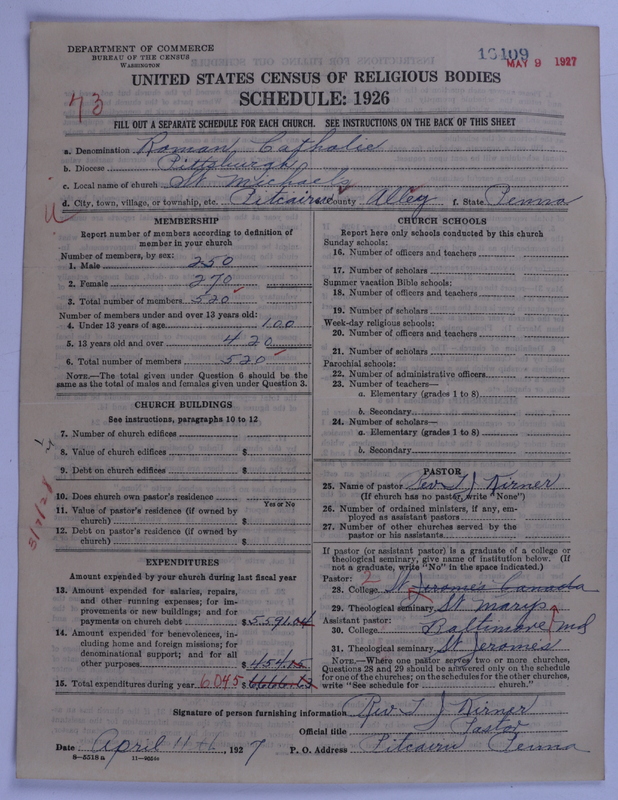 DEPARTMENT OF COMMERCE
BUREAU OF THE CENSUS
WASHINGTON
16109
MAY 9 1927
UNITED STATES CENSUS OF RELIGIOUS BODIES
SCHEDULE: 1926
73
FILL OUT A SEPARATE SCHEDULE FOR EACH CHURCH. SEE INSTRUCTIONS ON THE BACK OF THIS SHEET
a. Denomination Roman Catholic
b. Diocese Pittsburgh
c. Local name of church St Michaels
d. City, town, village, or township, etc. Pitcairn e. County Alleg f. State Penna
MEMBERSHIP
Report number of members according to definition of
member in your church
Number of members, by sex:
1. Male 250
2. Female 270
3. Total number of members 520
Number of members under and over 13 years old:
4. Under 13 years of age 100
5. 13 years old and over 420
6. Total number of members 520
NOTE.—The total given under Question 6 should be
same as the total of males and females given under Question 3.
CHURCH BUILDINGS
See instructions, paragraphs 10 to 12
7. Number of church edifices
8. Value of church edifices $
9. Debt on church edifices $
10. Does church own pastor's residence
Yes or No
11. Value of pastor's residence (if owned by
church) $
12. Debt on pastor's residence (if owned by
church) $
EXPENDITURES
Amount expended by your church during last fiscal year
13. Amount expended for salaries, repairs,
and other running expenses; for im-
provements or new buildings; and for
payments on church debt $5591.04
14. Amount expended for benevolences, in-
cluding home and foreign missions; for
denominational support; and for all
other purposes $454
15. Total expenditures during year 6045 $
CHURCH SCHOOLS
Report here only schools conducted by this church
Sunday schools:
16. Number of officers and teachers
17. Number of scholars
Summer vacation Bible schools:
18. Number of officers and teachers
19. Number of scholars
Week-day religious schools:
20. Number of officers and teachers
21. Number of scholars
Parochial schools:
22. Number of administrative officers
23. Number of teachers—
a. Elementary (grades 1 to 8)
b. Secondary
24. Number of scholars—
a. Elementary (grades 1 to 8)
b. Secondary
PASTOR
25. Name of pastor Rev T J Kirner
(If church has no pastor, write "None")
26. Number of ordained ministers, if any, em-
ployed as assistant pastors
27. Number of other churches served by the
pastor or his assistants
If pastor (or assistant pastor) is a graduate of a college or
theological seminary, give name of institution below. (If
not a graduate, write "No" in the space indicated.)
Pastor: 2
28. College St Jerome's Canada
29. Theological seminary St Marys
Assistant pastor: Baltimore Md
30. College
31. Theological seminary St Jerome's
NOTE.—Where one pastor served two or more churches,
Questions 28 and 29 should be answered only on the schedule
for one of the churches; on the schedules for the other churches,
write "See schedule for church."
Signature of person furnishing information Rev T J Kirner
Official title Pastor
Date April 11th, 1927 P. O. Address Pitcairn Penna
8—5518 a